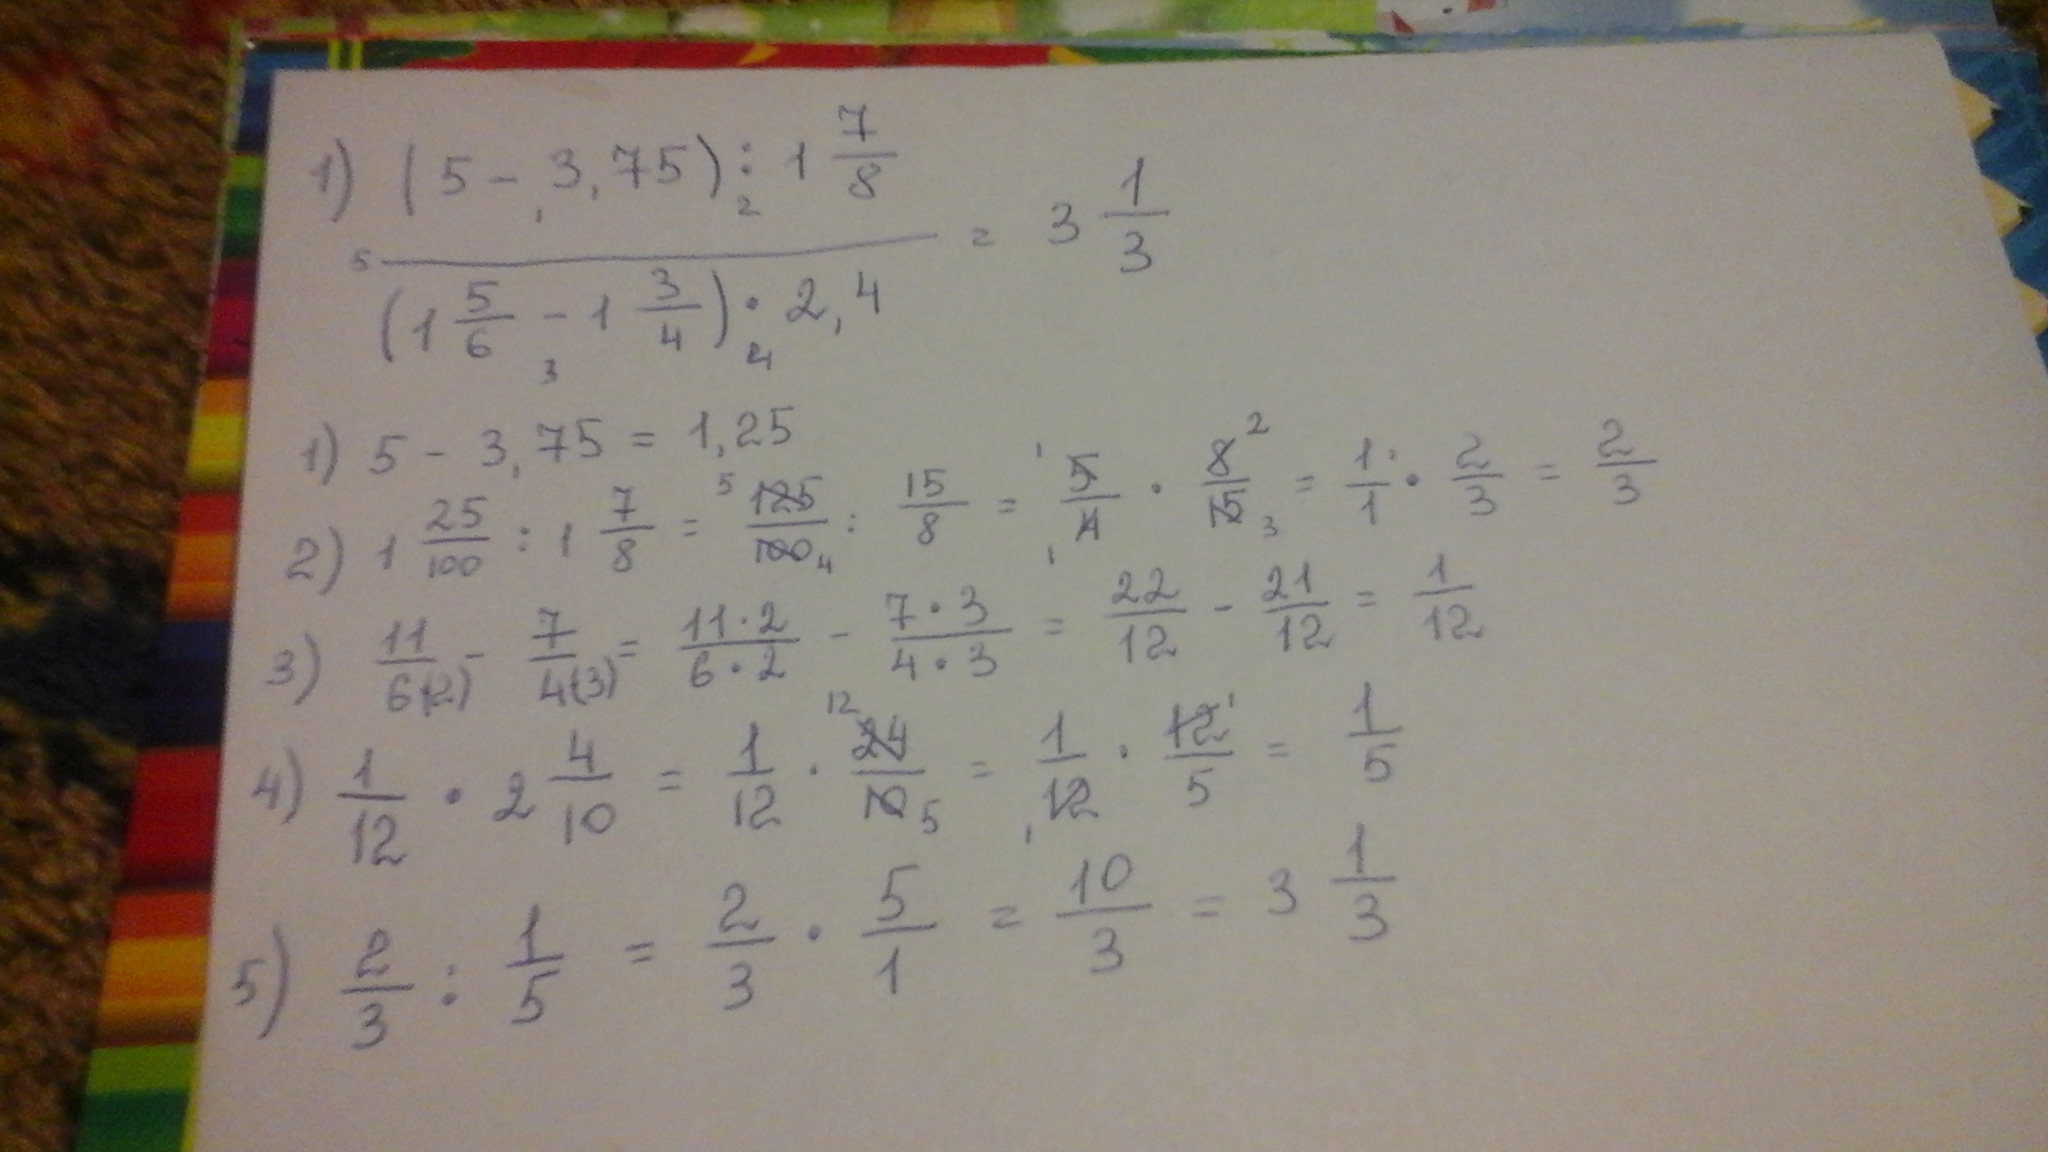 1) (5 - 3,75) : 1 7/8
1 2
5 ———————— = 3 1/3
(1 5/6 - 1 3/4) · 2,4
3 4
1) 5 - 3,75 = 1,25
2) 1 25/100 : 1 7/8 = 5 125/100 4 : 15/8 = 1 5/4 1 · 8 2/15 3 = 1/1 · 2/3 = 2/3
3) 11/6(2) - 7/4(3) = 11·2/6·2 - 7·3/4·3 = 22/12 - 21/12 = 1/12
4) 1/12 · 2 4/10 = 1/12 · 12 24/10 5 = 1/12 1 · 12 1/5 = 1/5
5) 2/3 : 1/5 = 2/3 · 5/1 = 10/3 = 3 1/3